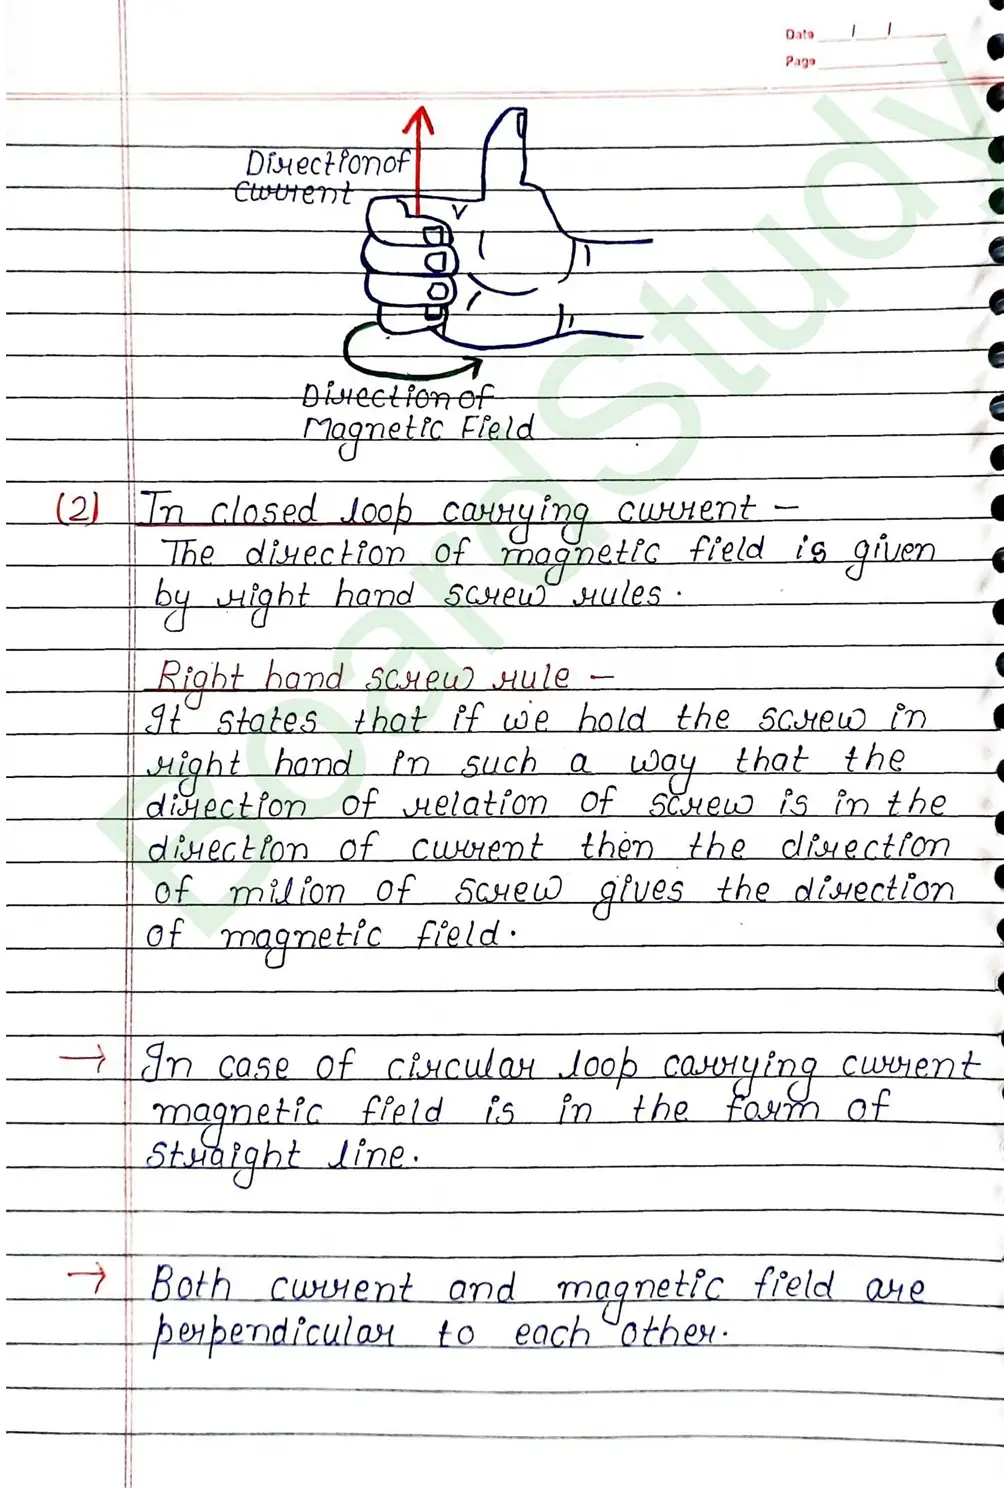 Date
Page
Direction of
Current
Direction of
Magnetic Field
(2) In closed loop carrying current -
The direction of magnetic field is given
by right hand screw rules.
Right hand screw rule -
It states that if we hold the screw in
right hand in such a way that the
direction of relation of screw is in the
direction of current then the direction
of milion of screw gives the direction
of magnetic field.
→ In case of circular loop carrying current
magnetic field is in the form of
straight line.
→ Both current and magnetic field are
perpendicular to each other.
BoardStudy